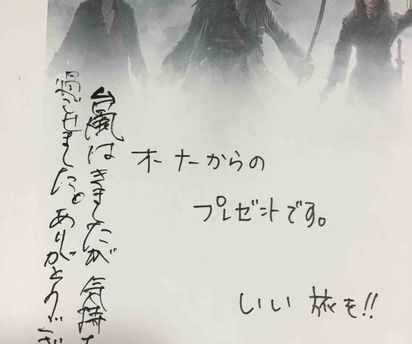 オーナからの
プレゼントです。
いい旅を!!
台風はきましたが気持
過ごせました。ありがとうござ